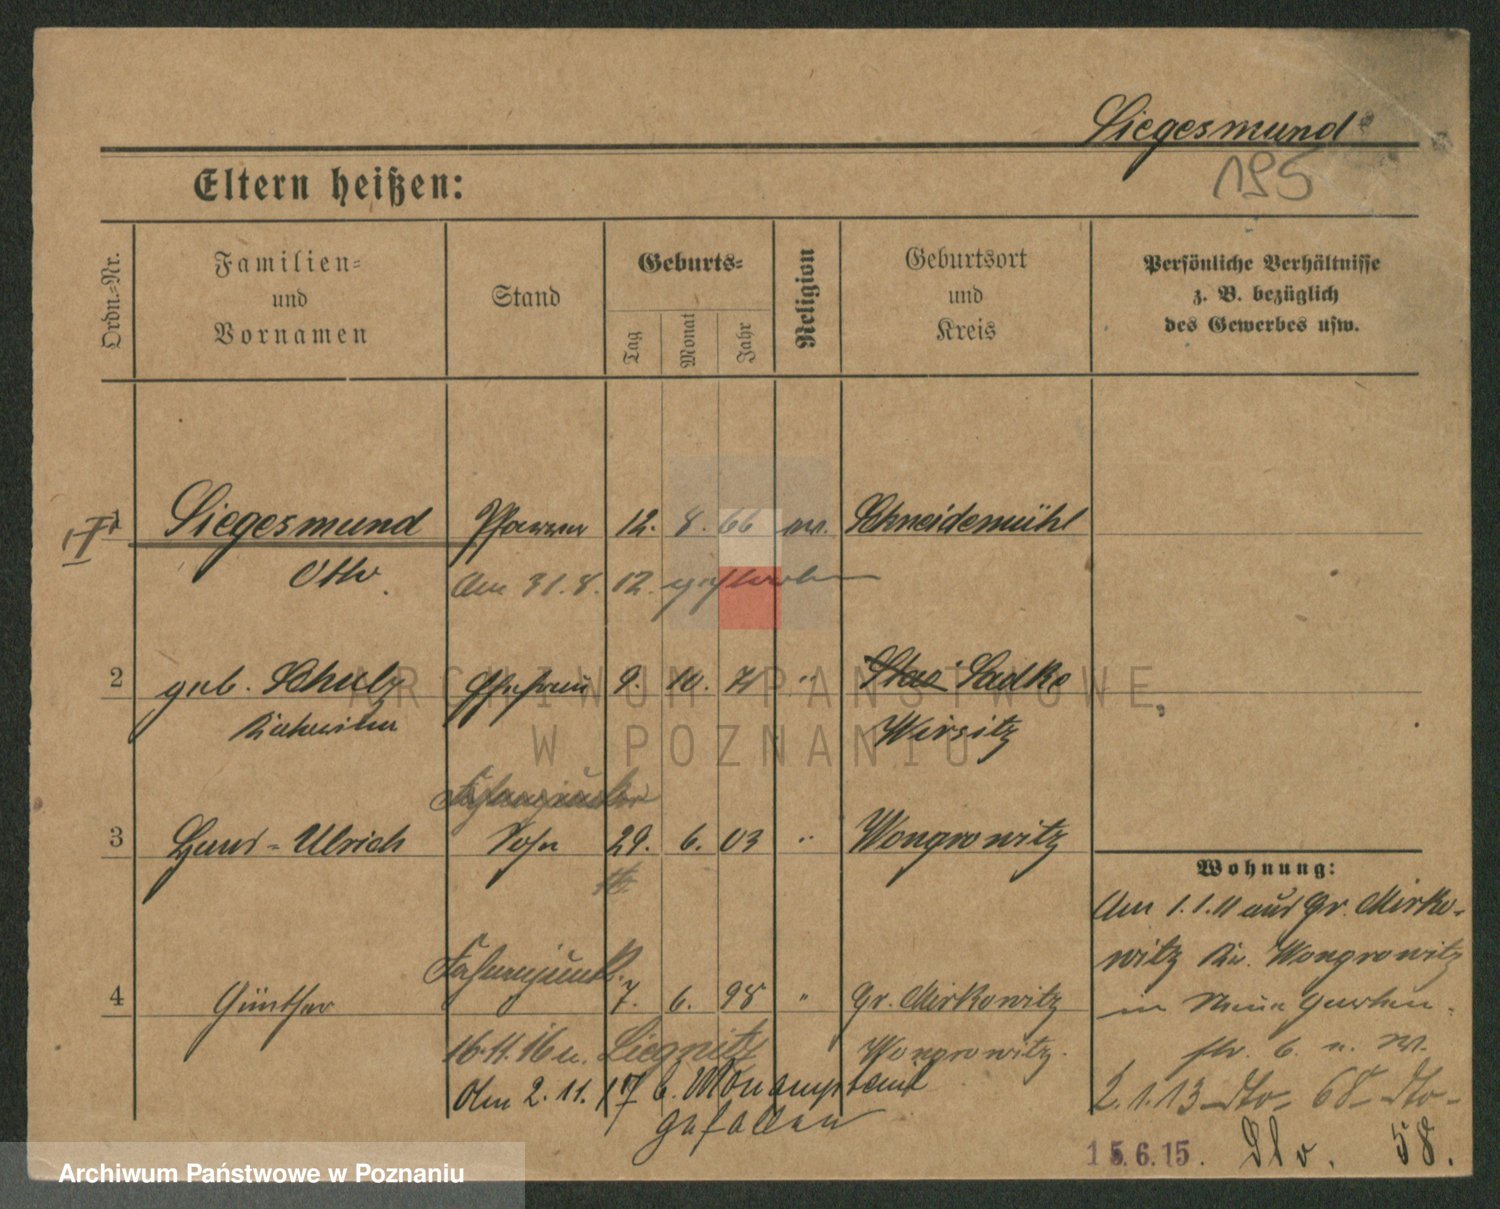 Siegesmund
195
Eltern heißen:
Ordn.-Nr.
Familien-
und
Vornamen
Stand
Geburts-
Tag
Monat
Jahr
Religion
Geburtsort
und
Kreis
Persönliche Verhältnisse
z. B. bezüglich
des Gewerbes usw.
1 Siegesmund Pfarrer 12. 8. 66 ev. Schneidemühl
Otto
Am 31.8. 12. gestorben
2 geb. Schulz Ehefrau 9. 10. " Sadke
Wirsitz
3 Hans-Ulrich Sohn 29. 6. 03 " Wongrowitz
Wohnung:
Am 1.1.11 aus Gr. Mirko-
witz Kr. Wongrowitz
4 Günther Fahnenjunk. 7. 6. 98 " Gr. Mirkowitz
in Neue Garten-
Wongrowitz.
str. 6.
16.11.16 n. Liegnitz
Am 2.11.17 b.
gefallen
2.1.13 dto 68 dto
15.6.15. dto. 58.
ARCHIWUM PAŃSTWOWE
W POZNANIU
Archiwum Państwowe w Poznaniu